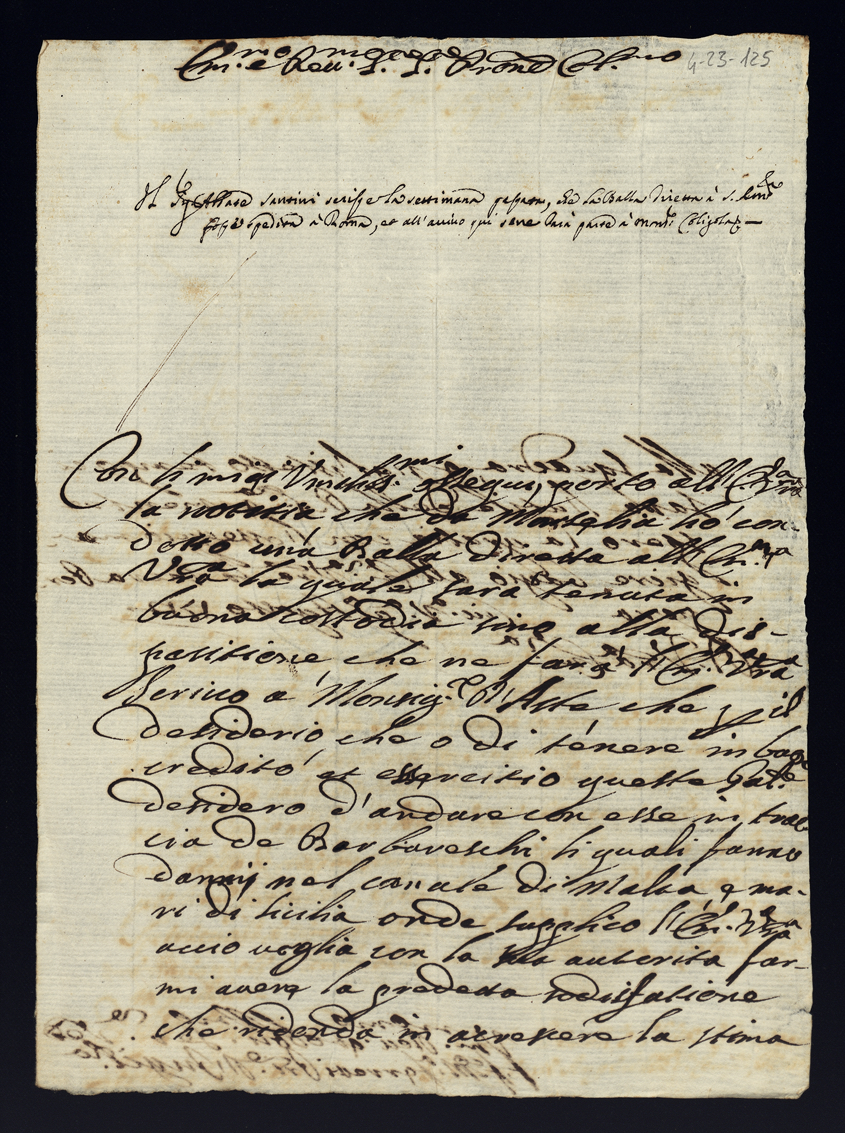 Em.mo e Reu.mo S.r S.r Prone Col.mo 4-23-125
Il Sig.re Abbate santini scrisse la settimana passata, che la Balla diretta à S. Em.za
fosse spedita à Roma, et all'auuiso qui sene darà parte à Mons.r
Con li miei ossequij porto all'Em.za Vra
la notitia che da Marseglia hò con-
dotto una Balla diretta all'Em.za
Vra la quale sarà tenuta in
buona custodia sino alla dis-
positione che ne farà l'Em.za Vra
Scriuo a Monsig.re d'Aste che p il
desiderio che o di tenere in buon
credito et essercitio queste Gal.e
desidero d'andare con esse in trac
cia de Barbareschi li quali fanno
danni nel canale di Malta e ma-
ri di sicilia onde supplico l'Em.za Vra
accio uoglia con la sua autorita far-
mi auere la predetta sodisfatione
che ridonda in acressere la stima